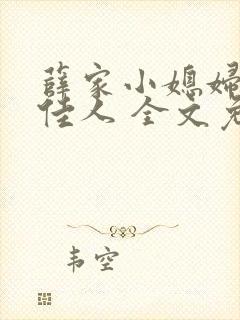 薛家小媳妇
佳人 全文免
韦空